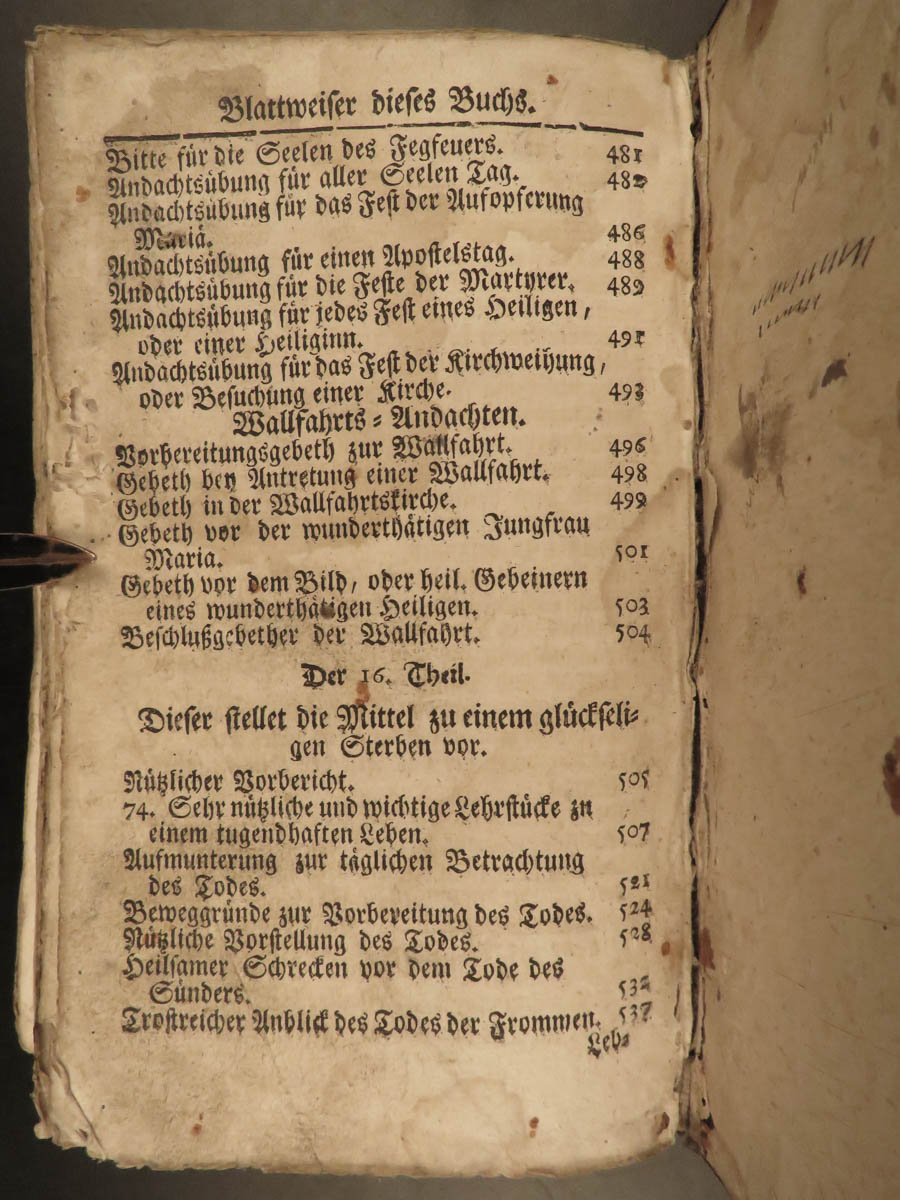 Blattweiser dieses Buchs.
Bitte für die Seelen des Fegfeuers. 481
Andachtsübung für aller Seelen Tag. 482
Andachtsübung für das Fest der Aufopferung
Mariä. 486
Andachtsübung für einen Apostelstag. 488
Andachtsübung für die Feste der Martyrer. 489
Andachtsübung für jedes Fest eines Heiligen,
oder einer Heiliginn. 491
Andachtsübung für das Fest der Kirchweihung,
oder Besuchung einer Kirche. 493
Wallfahrts-Andachten.
Vorbereitungsgebeth zur Wallfahrt. 496
Gebeth bey Antretung einer Wallfahrt. 498
Gebeth in der Wallfahrtskirche. 499
Gebeth vor der wunderthätigen Jungfrau
Maria. 501
Gebeth vor dem Bild, oder heil. Gebeinern
eines wunderthätigen Heiligen. 503
Beschlußgebether der Wallfahrt. 504
Der 16. Theil.
Dieser stellet die Mittel zu einem glückseli-
gen Sterben vor.
Nützlicher Vorbericht. 505
74. Sehr nützliche und wichtige Lehrstücke zu
einem tugendhaften Leben. 507
Aufmunterung zur täglichen Betrachtung
des Todes. 521
Beweggründe zur Vorbereitung des Todes. 524
Nützliche Vorstellung des Todes. 528
Heilsamer Schrecken vor dem Tode des
Sünders. 532
Trostreicher Anblick des Todes der Frommen. 537
Leb-